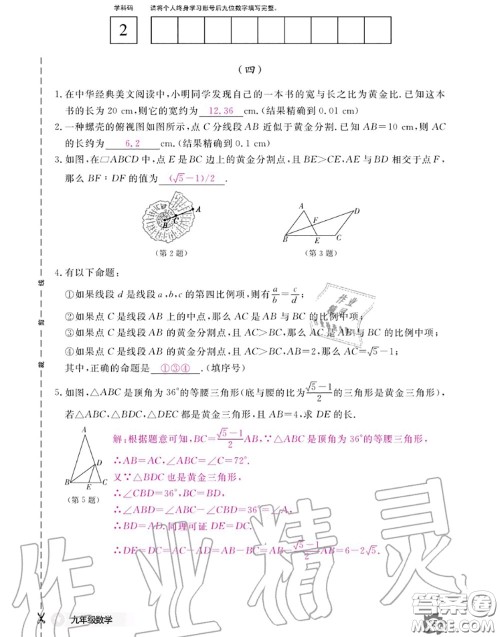 学科码 请将个人终身学习账号后九位数字填写完整。
2
(四)
1. 在中华经典美文阅读中,小明同学发现自己的一本书的宽与长之比为黄金比.已知这本
书的长为 20 cm,则它的宽约为 12.36 cm.(结果精确到 0.01 cm)
2. 一种螺壳的俯视图如图所示,点 C 分线段 AB 近似于黄金分割.已知 AB=10 cm,则 AC
的长约为 6.2 cm.(结果精确到 0.1 cm)
3. 如图,在□ABCD 中,点 E 是 BC 边上的黄金分割点,且 BE>CE,AE 与 BD 相交于点 F,
那么 BF∶DF 的值为 (√5-1)/2 .
A
B
E
C
D
F
(第 2 题) (第 3 题)
4. 有以下命题:
①如果线段 d 是线段 a,b,c 的第四比例项,则有 a/b=c/d;
②如果点 C 是线段 AB 上的中点,那么 AC 是 AB 与 BC 的比例中项;
③如果点 C 是线段 AB 的黄金分割点,且 AC>BC,那么 AC 是 AB 与 BC 的比例中项;
④如果点 C 是线段 AB 的黄金分割点,且 AC>BC,AB=2,那么 AC=√5-1;
其中,正确的命题是 ①③④ .(填序号)
5. 如图,△ABC 是顶角为 36°的等腰三角形(底与腰的比为(√5-1)/2的三角形是黄金三角形),
若△ABC、△BDC、△DEC 都是黄金三角形,且 AB=4,求 DE 的长.
A
D
B
E
C
(第 5 题)
解:根据题意可知,BC=(√5-1)/2 AB,∵△ABC 是顶角为 36°的等腰三角形,
∴AB=AC,∠ABC=∠C=72°.
又∵△BDC 也是黄金三角形,
∴∠CBD=36°,BC=BD,
∴∠ABD=∠ABC-∠CBD=36°=∠A,
∴BD=AD,同理可证 DE=DC.
九年级数学
作业精灵